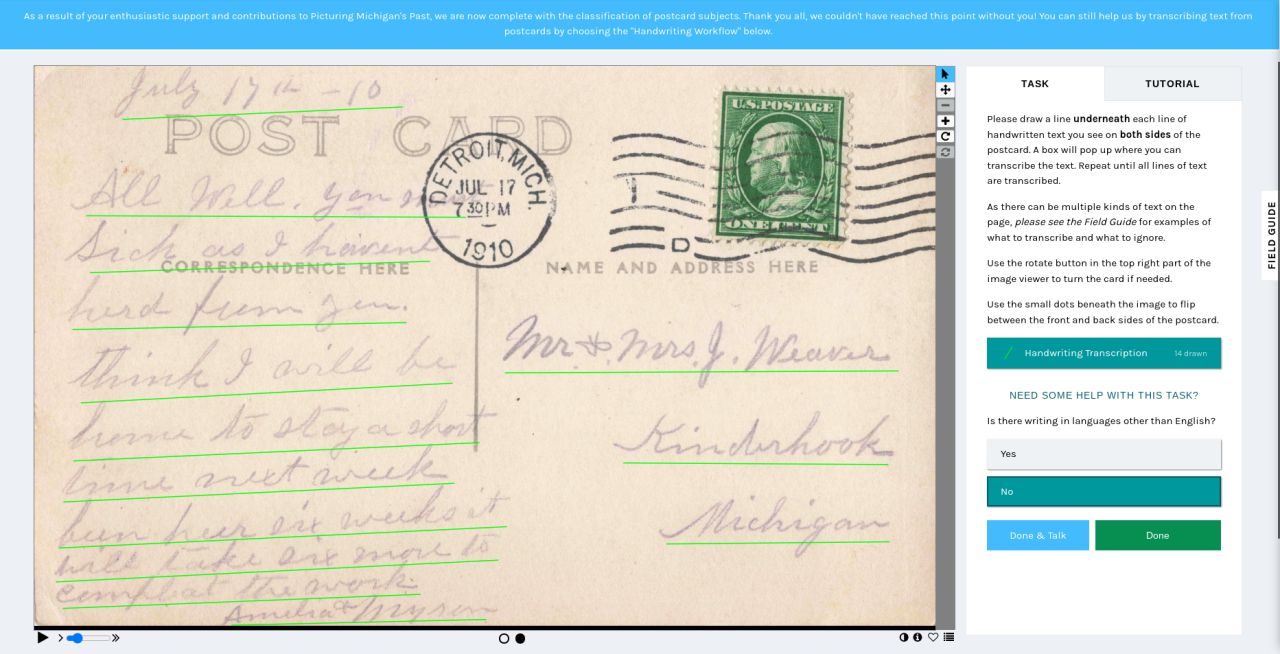 As a result of your enthusiastic support and contributions to Picturing Michigan's Past, we are now complete with the classification of postcard subjects. Thank you all, we couldn't have reached this point without you! You can still help us by transcribing text from
postcards by choosing the "Handwriting Workflow" below.
July 17th - 10
POST CARD
U.S. POSTAGE
ONE CENT
DETROIT, MICH.
JUL 17
7 30 PM
1910
D
All Well, you
Sick as I havent
CORRESPONDENCE HERE
NAME AND ADDRESS HERE
herd from you.
think I will be
home to stay a short
time next week
bun heer six weeks it
will take six more to
compleat the work.
Amelia & Myron
Mr. & Mrs. J. Weaver
Kinderhook
Michigan
TASK
TUTORIAL
Please draw a line underneath each line of
handwritten text you see on both sides of the
postcard. A box will pop up where you can
transcribe the text. Repeat until all lines of text
are transcribed.
As there can be multiple kinds of text on the
page, please see the Field Guide for examples of
what to transcribe and what to ignore.
Use the rotate button in the top right part of the
image viewer to turn the card if needed.
Use the small dots beneath the image to flip
between the front and back sides of the postcard.
Handwriting Transcription 14 drawn
NEED SOME HELP WITH THIS TASK?
Is there writing in languages other than English?
Yes
No
Done & Talk
Done
FIELD GUIDE